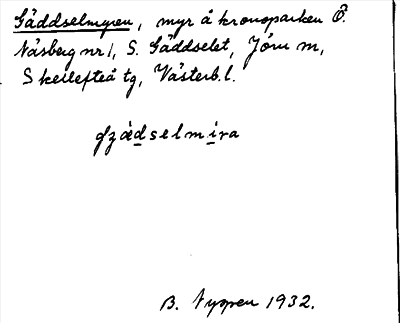 Gäddselmyren, myr å kronoparken Ö.
Näsberg nr 1, S. Gäddselet, Jörn sn,
Skellefteå tg, Västerb. l.
ɟzädselmira
B. Nygren 1932.